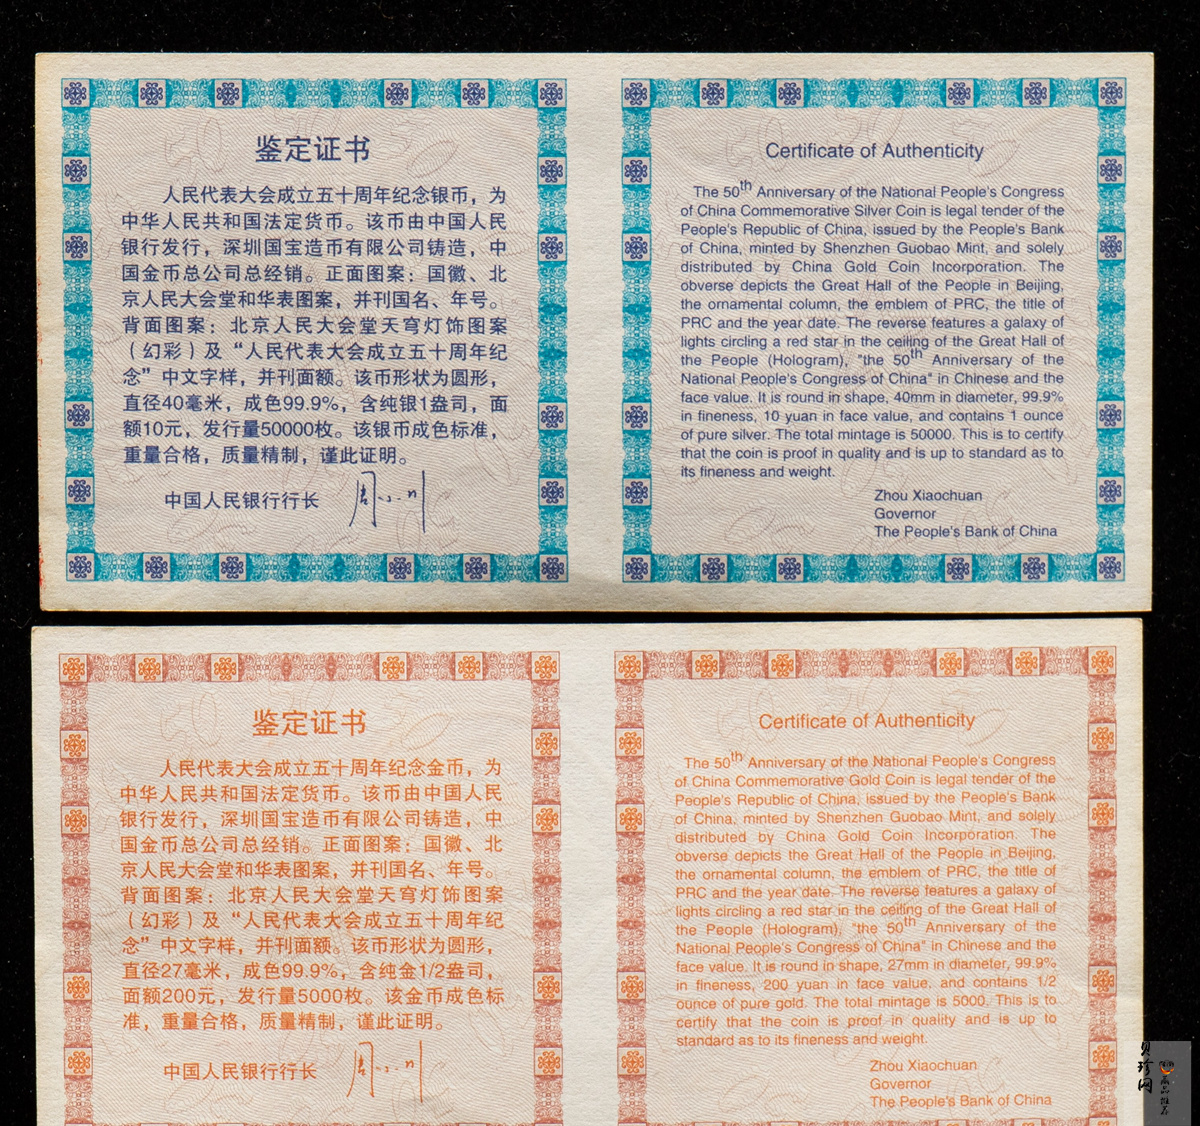 鉴定证书
人民代表大会成立五十周年纪念银币，为
中华人民共和国法定货币。该币由中国人民
银行发行，深圳国宝造币有限公司铸造，中
国金币总公司总经销。正面图案：国徽、北
京人民大会堂和华表图案，并刊国名、年号。
背面图案：北京人民大会堂天穹灯饰图案
（幻彩）及“人民代表大会成立五十周年纪
念”中文字样，并刊面额。该币形状为圆形，
直径40毫米，成色99.9%，含纯银1盎司，面
额10元，发行量50000枚。该银币成色标准，
重量合格，质量精制，谨此证明。
中国人民银行行长 周小川
Certificate of Authenticity
The 50th Anniversary of the National People's Congress
of China Commemorative Silver Coin is legal tender of the
People's Republic of China, issued by the People's Bank
of China, minted by Shenzhen Guobao Mint, and solely
distributed by China Gold Coin Incorporation. The
obverse depicts the Great Hall of the People in Beijing,
the ornamental column, the emblem of PRC, the title of
PRC and the year date. The reverse features a galaxy of
lights circling a red star in the ceiling of the Great Hall of
the People (Hologram), "the 50th Anniversary of the
National People's Congress of China" in Chinese and the
face value. It is round in shape, 40mm in diameter, 99.9%
in fineness, 10 yuan in face value, and contains 1 ounce
of pure silver. The total mintage is 50000. This is to certify
that the coin is proof in quality and is up to standard as to
its fineness and weight.
Zhou Xiaochuan
Governor
The People's Bank of China
鉴定证书
人民代表大会成立五十周年纪念金币，为
中华人民共和国法定货币。该币由中国人民
银行发行，深圳国宝造币有限公司铸造，中
国金币总公司总经销。正面图案：国徽、北
京人民大会堂和华表图案，并刊国名、年号。
背面图案：北京人民大会堂天穹灯饰图案
（幻彩）及“人民代表大会成立五十周年纪
念”中文字样，并刊面额。该币形状为圆形，
直径27毫米，成色99.9%，含纯金1/2盎司，
面额200元，发行量5000枚。该金币成色标
准，重量合格，质量精制，谨此证明。
中国人民银行行长 周小川
Certificate of Authenticity
The 50th Anniversary of the National People's Congress
of China Commemorative Gold Coin is legal tender of the
People's Republic of China, issued by the People's Bank
of China, minted by Shenzhen Guobao Mint, and solely
distributed by China Gold Coin Incorporation. The
obverse depicts the Great Hall of the People in Beijing,
the ornamental column, the emblem of PRC, the title of
PRC and the year date. The reverse features a galaxy of
lights circling a red star in the ceiling of the Great Hall of
the People (Hologram), "the 50th Anniversary of the
National People's Congress of China" in Chinese and the
face value. It is round in shape, 27mm in diameter, 99.9%
in fineness, 200 yuan in face value, and contains 1/2
ounce of pure gold. The total mintage is 5000. This is to
certify that the coin is proof in quality and is up to
standard as to its fineness and weight.
Zhou Xiaochuan
Governor
The People's Bank of China